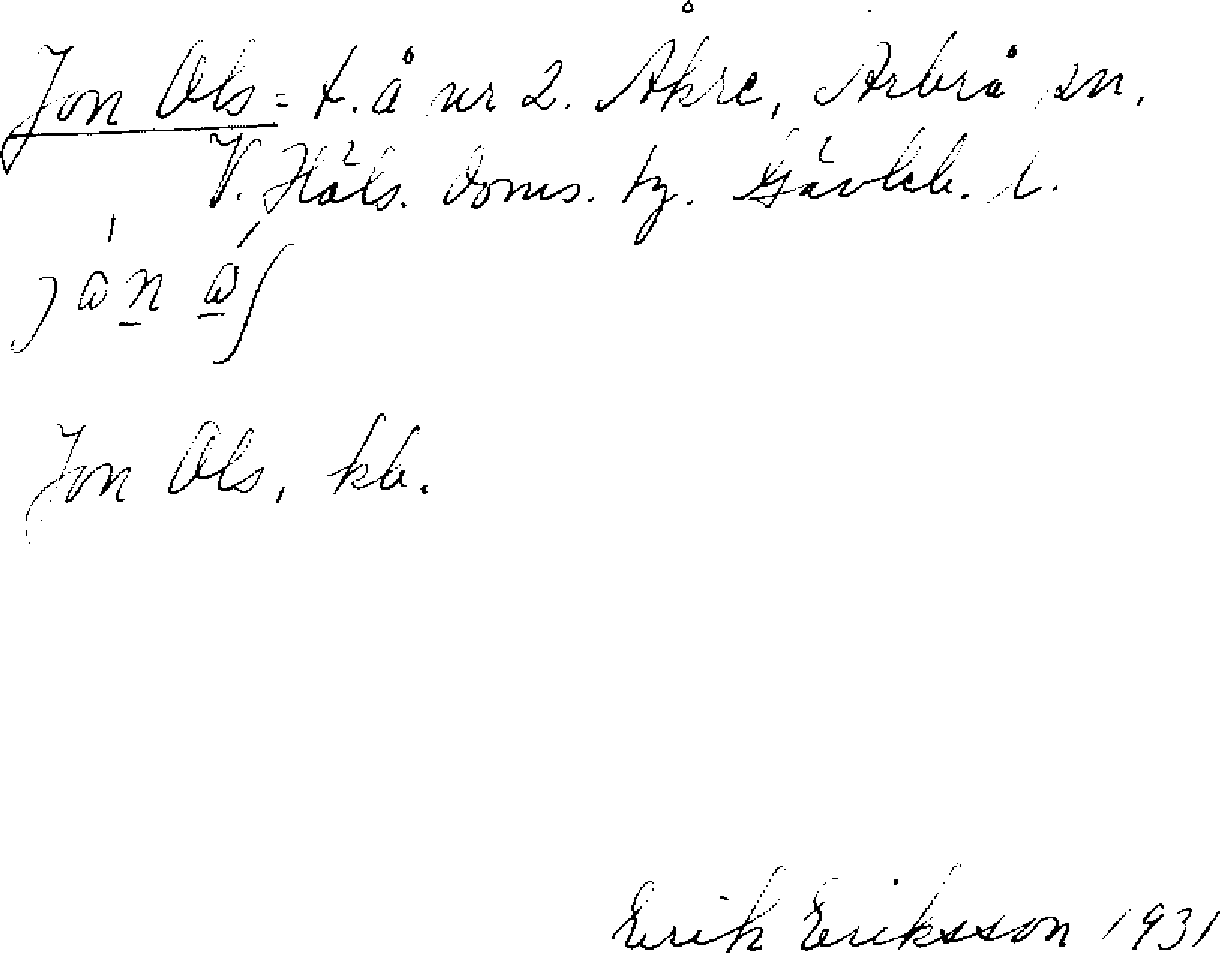 Jon Ols = t. å nr 2. Åkre, Arbrå sn.
V. Häls. doms. tg. Gävleb. l.
Jon Ols, kb.
Erik Eriksson 1931